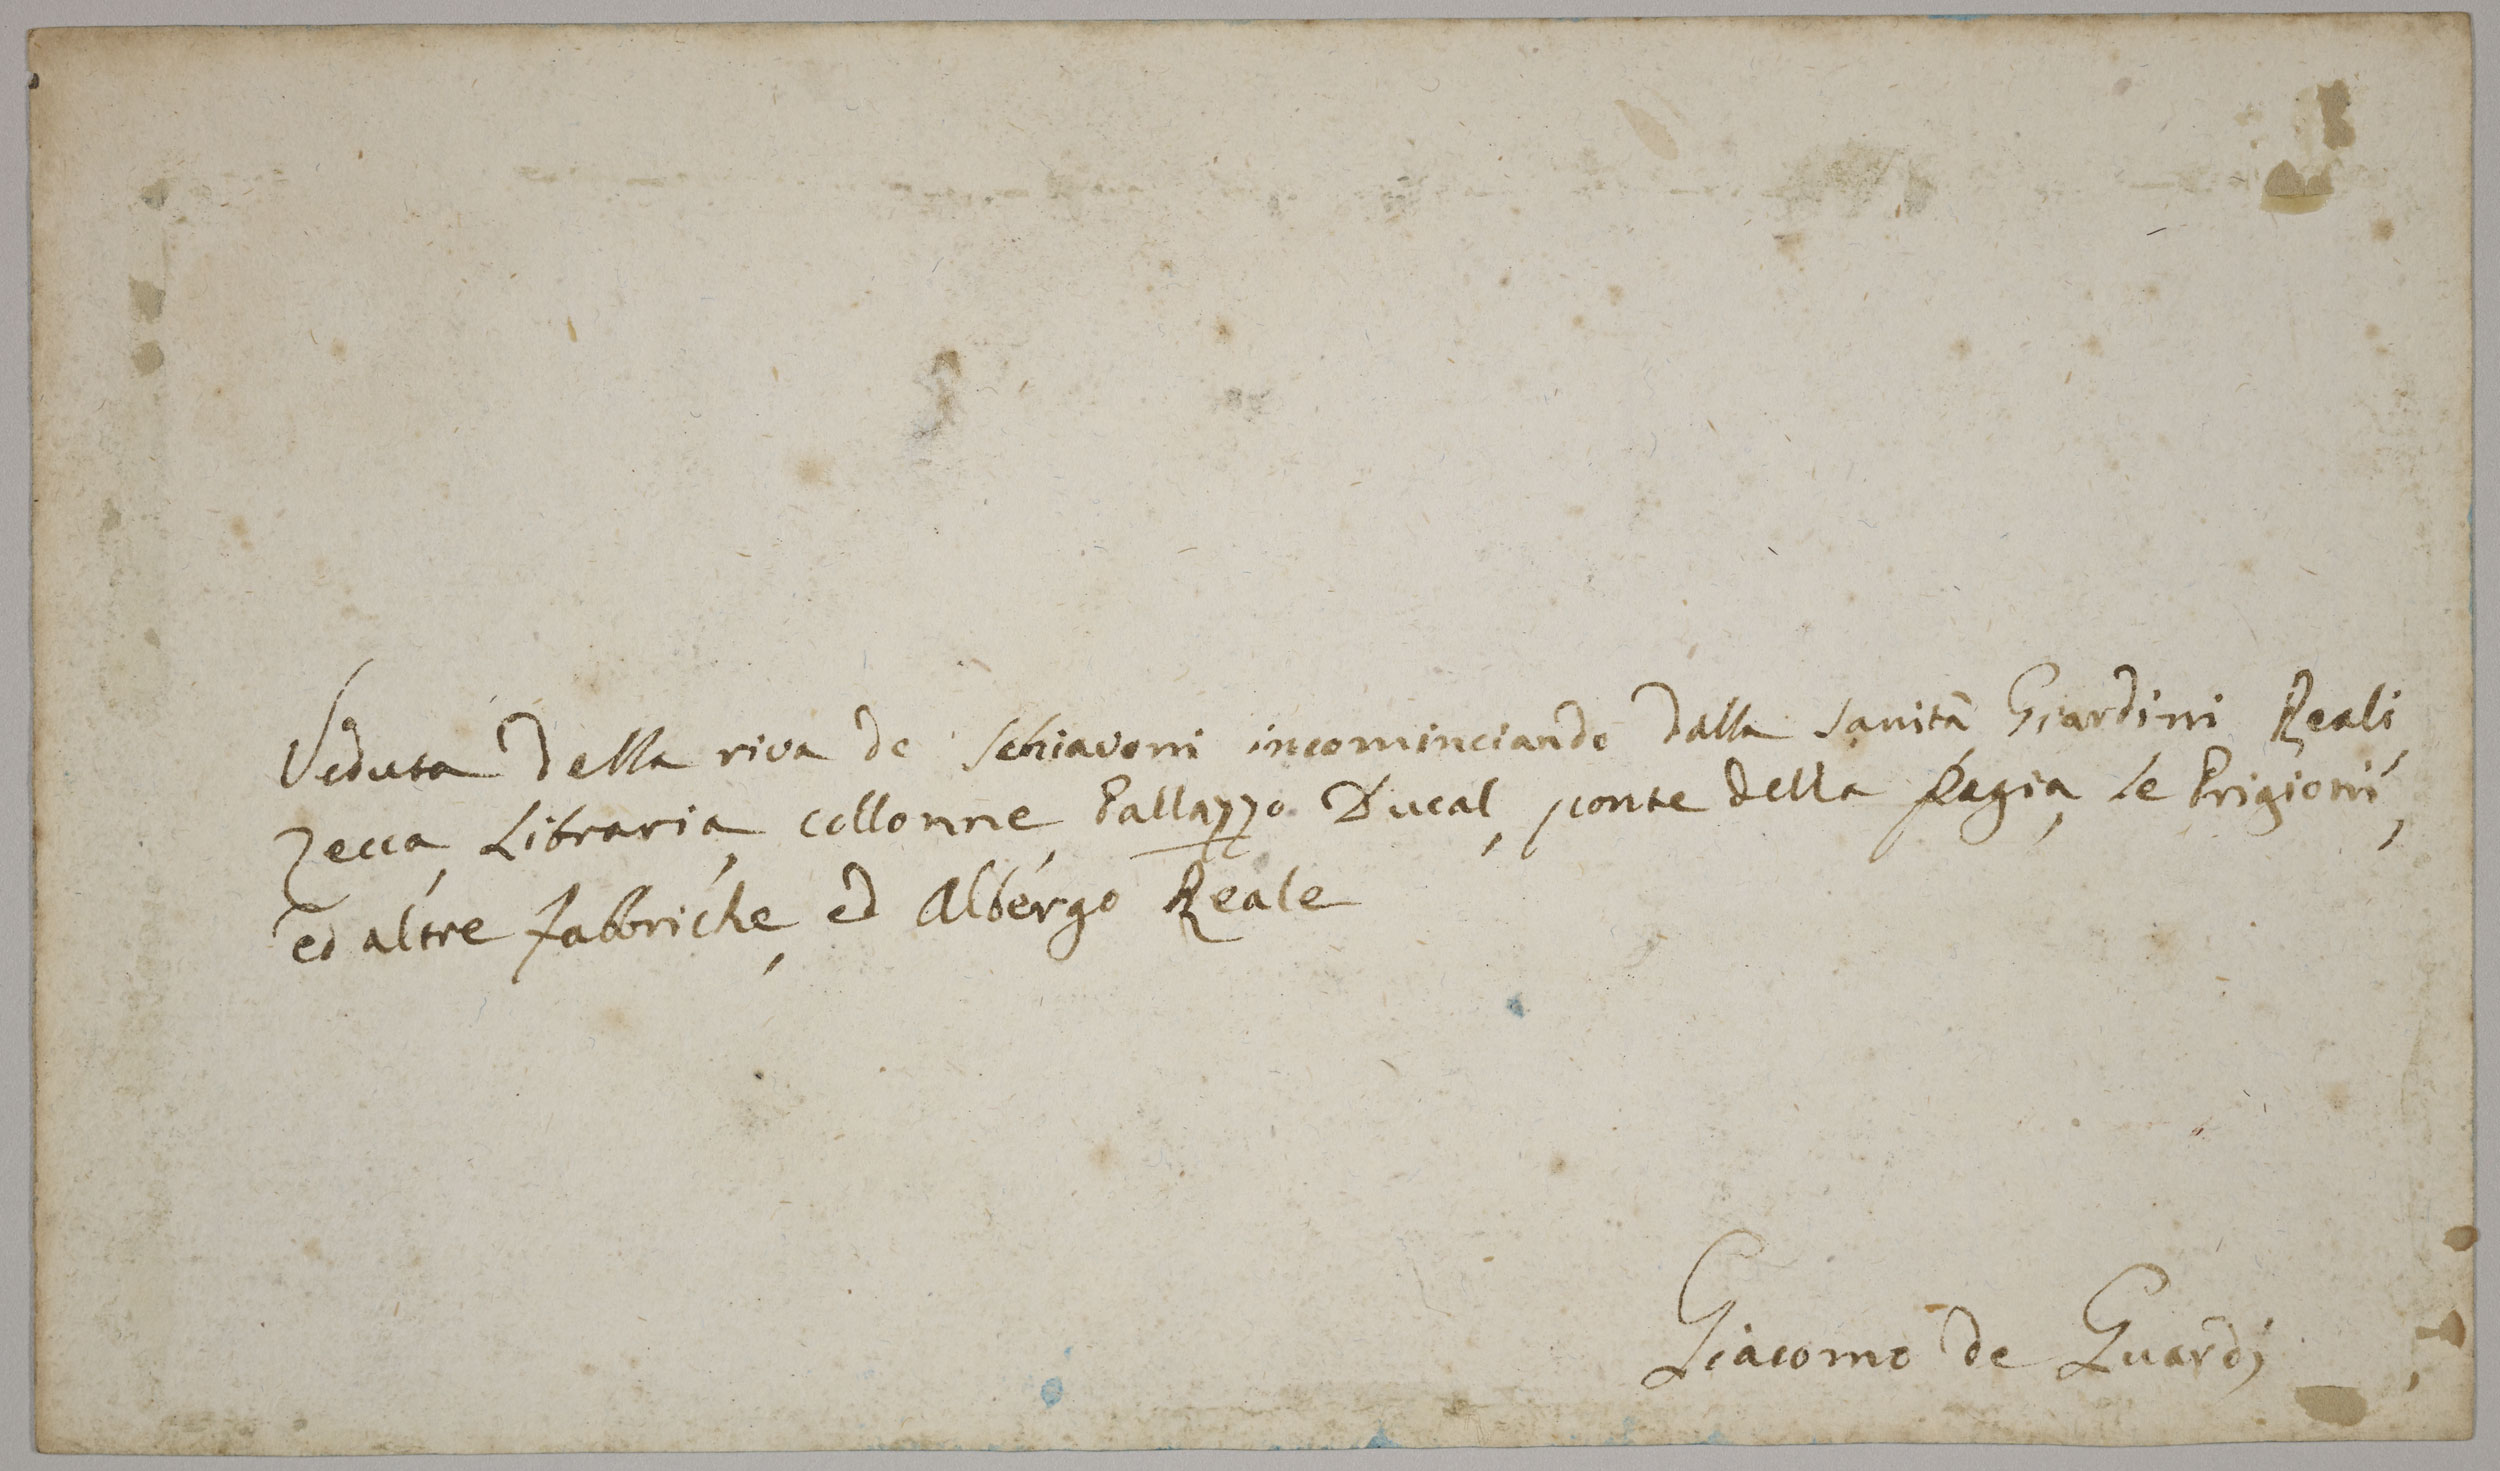 Veduta della riva de Schiavoni incominciando dalla Sanità Giardini Reali,
Zecca, Libraria, collonne, Pallazzo Ducal, ponte della Pagia, le Prigioni,
ed altre fabbriche, ed Albergo Reale
Giacomo de Guardi